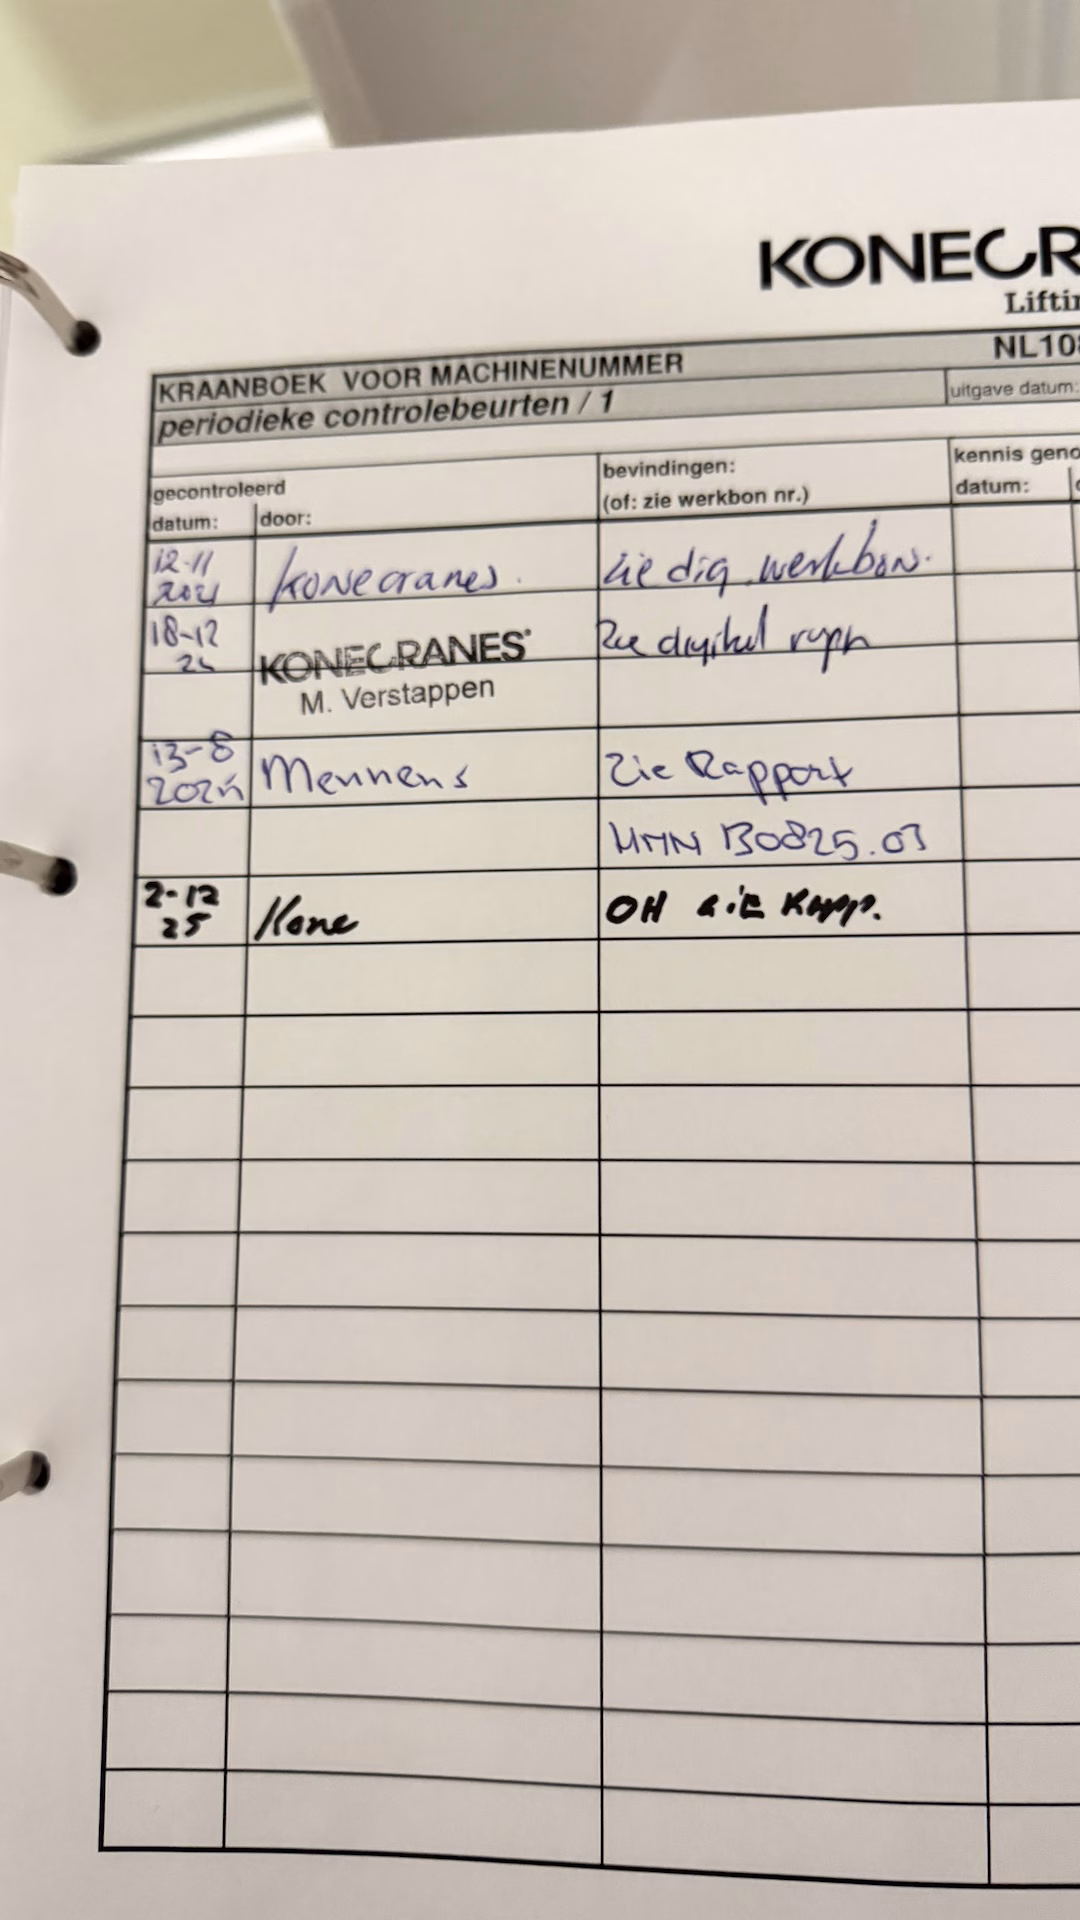 KONECR
Liftin
KRAANBOEK VOOR MACHINENUMMER NL108
periodieke controlebeurten / 1 uitgave datum:
gecontroleerd bevindingen: kennis geno
datum: door: (of: zie werkbon nr.) datum:
12-11 Konecranes. zie dig. werkbon.
18-12 Zie digitaal
24 KONECRANES
M. Verstappen
13-8 Mennens Zie Rapport
2025
MMN 130825.03
2-12 Kone OH zie Rapp.
25